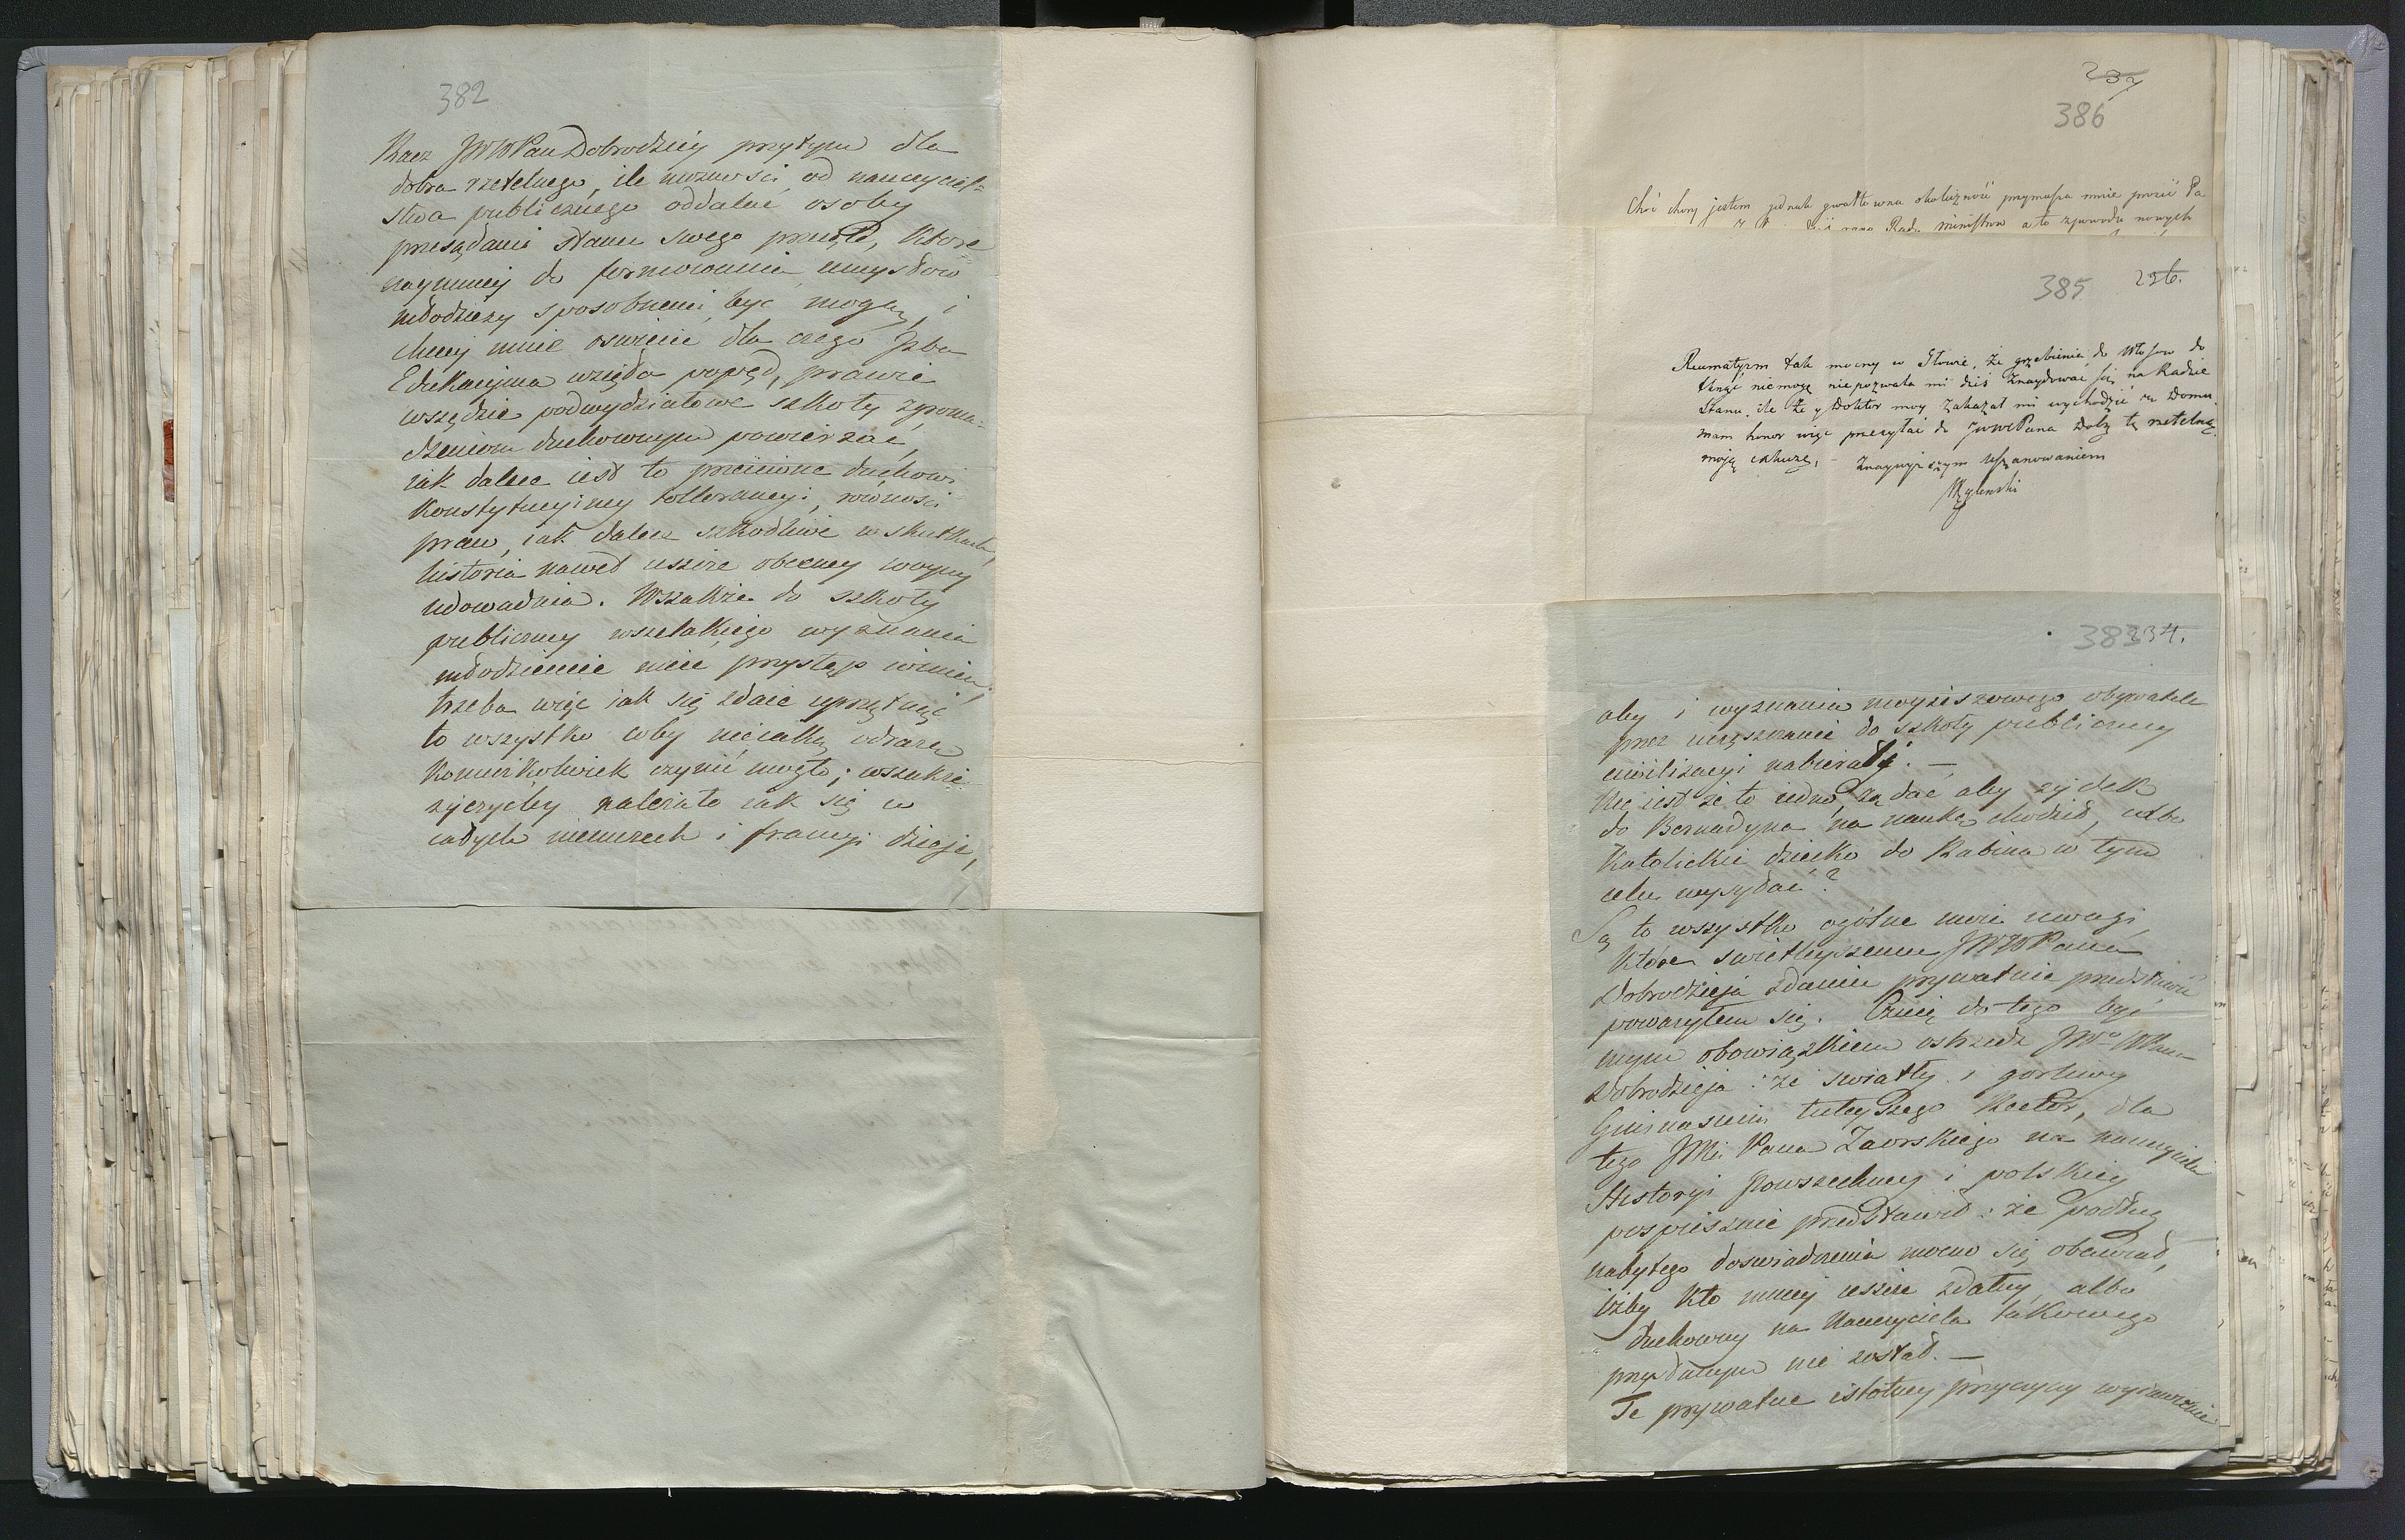 382
Racz JWW Pan Dobrodziéy przytym dla
dobra rzetelnego, ile możności od nauczyciel-
stwa publicznego oddalać osoby
przesądami stanu swego przeięte, które
naymniey do formowania umysłów
młodzieży sposobnemi być mogą, i
chciey mnie oświecić dla czego Izba
Edukacyjna wzięła popęd, prawie
wszędzie podwydziałowe szkoły zgroma-
dzeniom duchownym powierzać,
iak dalece iest to przeciwne duchowi
Konstytucyiney tollerancyi, równości
praw, iak dalece szkodliwe w skutkach,
historia nawet ieszcze obecney woyny
udowadnia. Wszakże do szkoły
publiczney wszelakiego wyznania
młodzieniec mieć przystęp winien,
trzeba więc iak się zdaie uprzątnąć
to wszystko coby nieiaką odrazę
komużkolwiek czynić mogło; wszakże
życzyćby należało iak się w
całych niemczech i francyi dzieje,
232
386
Choć chory jestem jednak gwałtowna okoliczność przymusza mnie prosić Pa
rano Radę ministrów a to z powodu nowych
385 236.
Reumatyzm tak mocny w Głowie, że grzebienia do Włosów do
tknąć nie mogę nie pozwala mi dziś znaydować się na Radzie
Stanu, ile że y Doktor moy zakazał mi wychodzić z Domu.
mam honor więc przesyłać do JWWPana Dobr tę rzetelną
moją exkuzę, - Znaywyższym uszanowaniem
Węglenski
383 234.
aby i wyznania moyżeszowego obywatele
przez uczęszczanie do szkoły publiczney
cywilizacyi nabierali. —
Nie iest że to iedno, żądać aby żydek
do Bernadyna na naukę chodził, albo
Katolickie dziecko do Rabina w tym
celu wysyłać?
Są to wszystko ogólne moie uwagi,
które świetleyszemu JWW Pana
Dobrodzieja zdaniu prywatnie przedstawić
poważyłem się. Czuię do tego być
mym obowiązkiem ostrzedz JWo WPana
Dobrodzieja: że światły i gorliwy
Gimnasium tuteyszego Rector, dla
tego JMci Pana Zaorskiego na nauczyciela
Historyi Powszechney i polskiey
pospiesznie przedstawił: że podług
nabytego doswiadczenia mocno się obawiał,
iżby kto mniey ieszcze zdatny, albo
duchowny na Nauczyciela takowego
przydanym nie został. —
Te prywatne istotney przyczyny wyiawienie